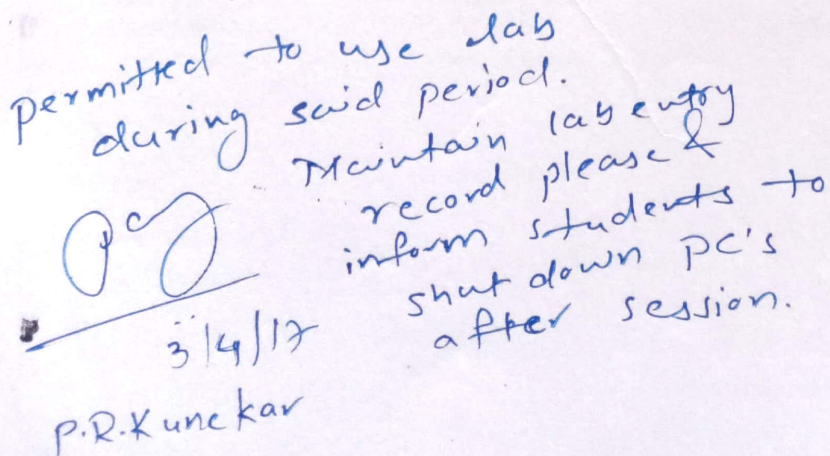 permitted to use lab
during said period.
Maintain lab entry
record please &
inform students to
shut down PC's
after session.
3/4/17
P.R.Kunekar